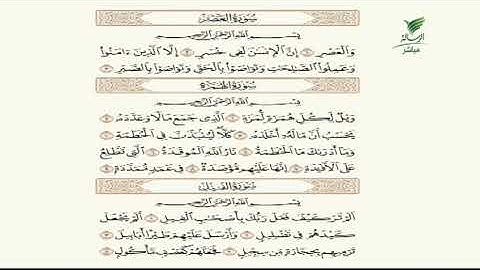 سُورَةُ العَصْرِ
بِسْمِ اللَّهِ الرَّحْمَٰنِ الرَّحِيمِ
وَالْعَصْرِ ١ إِنَّ الْإِنسَانَ لَفِي خُسْرٍ ٢ إِلَّا الَّذِينَ ءَامَنُوا
وَعَمِلُوا الصَّالِحَاتِ وَتَوَاصَوْا بِالْحَقِّ وَتَوَاصَوْا بِالصَّبْرِ ٣
سُورَةُ الهُمَزَةِ
بِسْمِ اللَّهِ الرَّحْمَٰنِ الرَّحِيمِ
وَيْلٌ لِّكُلِّ هُمَزَةٍ لُّمَزَةٍ ١ الَّذِي جَمَعَ مَالًا وَعَدَّدَهُ ٢
يَحْسَبُ أَنَّ مَالَهُ أَخْلَدَهُ ٣ كَلَّا لَيُنبَذَنَّ فِي الْحُطَمَةِ ٤
وَمَا أَدْرَاكَ مَا الْحُطَمَةُ ٥ نَارُ اللَّهِ الْمُوقَدَةُ ٦ الَّتِي تَطَّلِعُ
عَلَى الْأَفْئِدَةِ ٧ إِنَّهَا عَلَيْهِم مُّؤْصَدَةٌ ٨ فِي عَمَدٍ مُّمَدَّدَةٍ ٩
سُورَةُ الفِيلِ
بِسْمِ اللَّهِ الرَّحْمَٰنِ الرَّحِيمِ
أَلَمْ تَرَ كَيْفَ فَعَلَ رَبُّكَ بِأَصْحَابِ الْفِيلِ ١ أَلَمْ يَجْعَلْ
كَيْدَهُمْ فِي تَضْلِيلٍ ٢ وَأَرْسَلَ عَلَيْهِمْ طَيْرًا أَبَابِيلَ ٣
تَرْمِيهِم بِحِجَارَةٍ مِّن سِجِّيلٍ ٤ فَجَعَلَهُمْ كَعَصْفٍ مَّأْكُولٍ ٥
الرسالة
مباشر